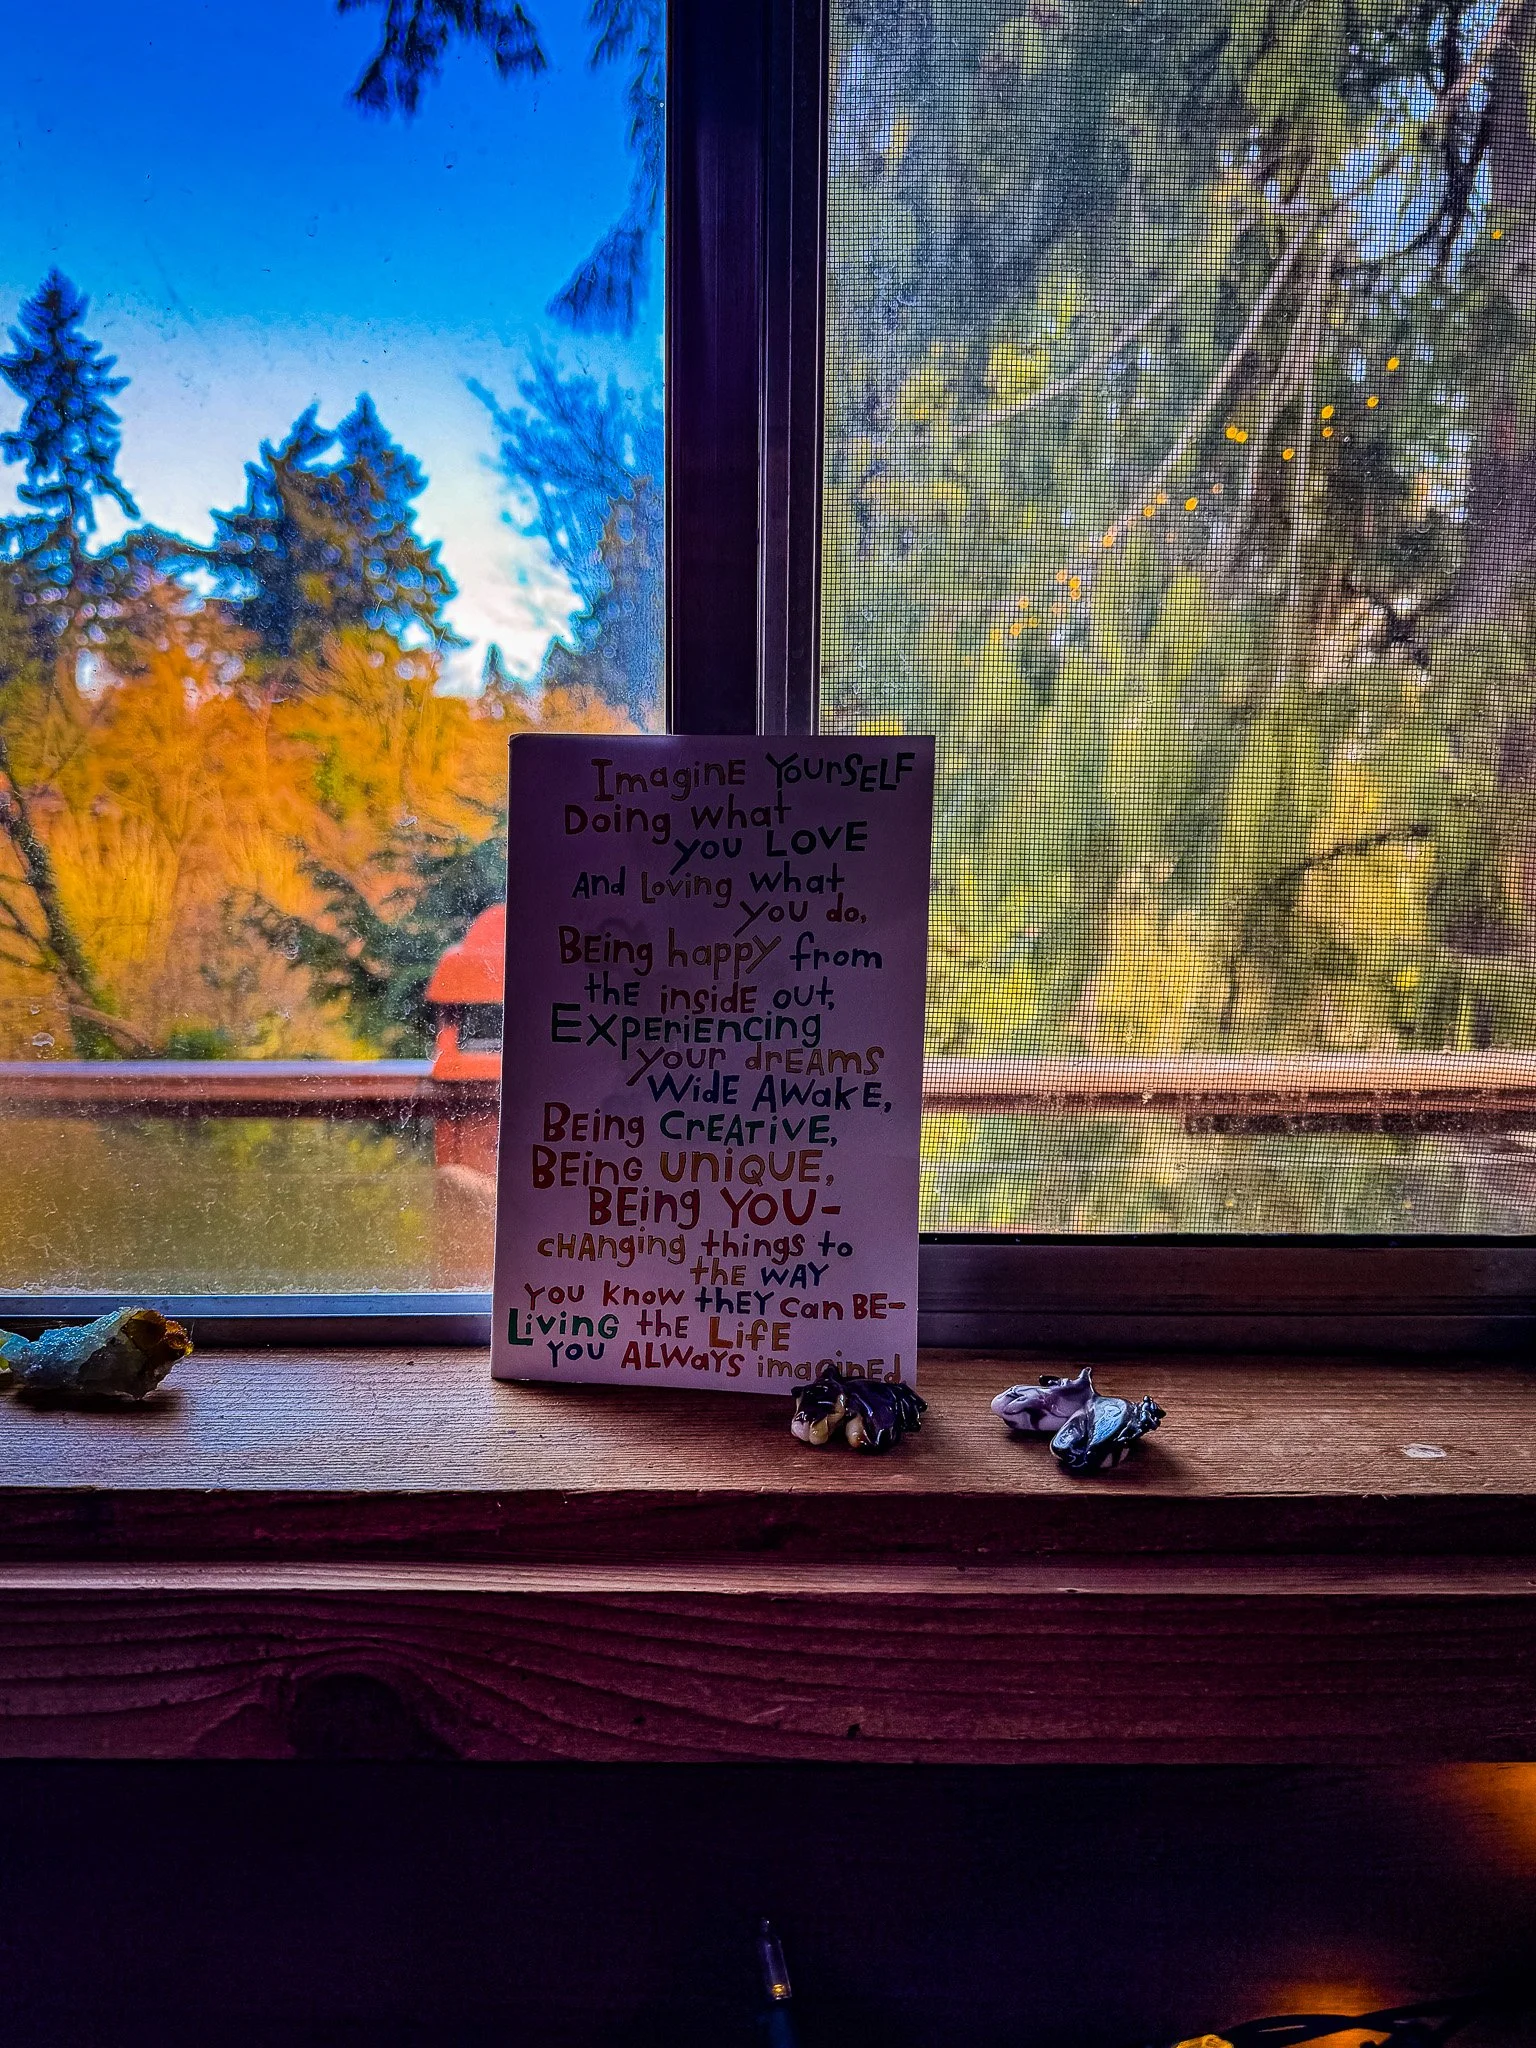 Imagine Yourself
Doing what
you LOVE
And loving what
you do,
Being happy from
the inside out,
Experiencing
your dreams
Wide Awake,
Being Creative,
Being unique,
Being YOU-
changing things to
the way
you know they can BE-
Living the Life
you Always imagined.